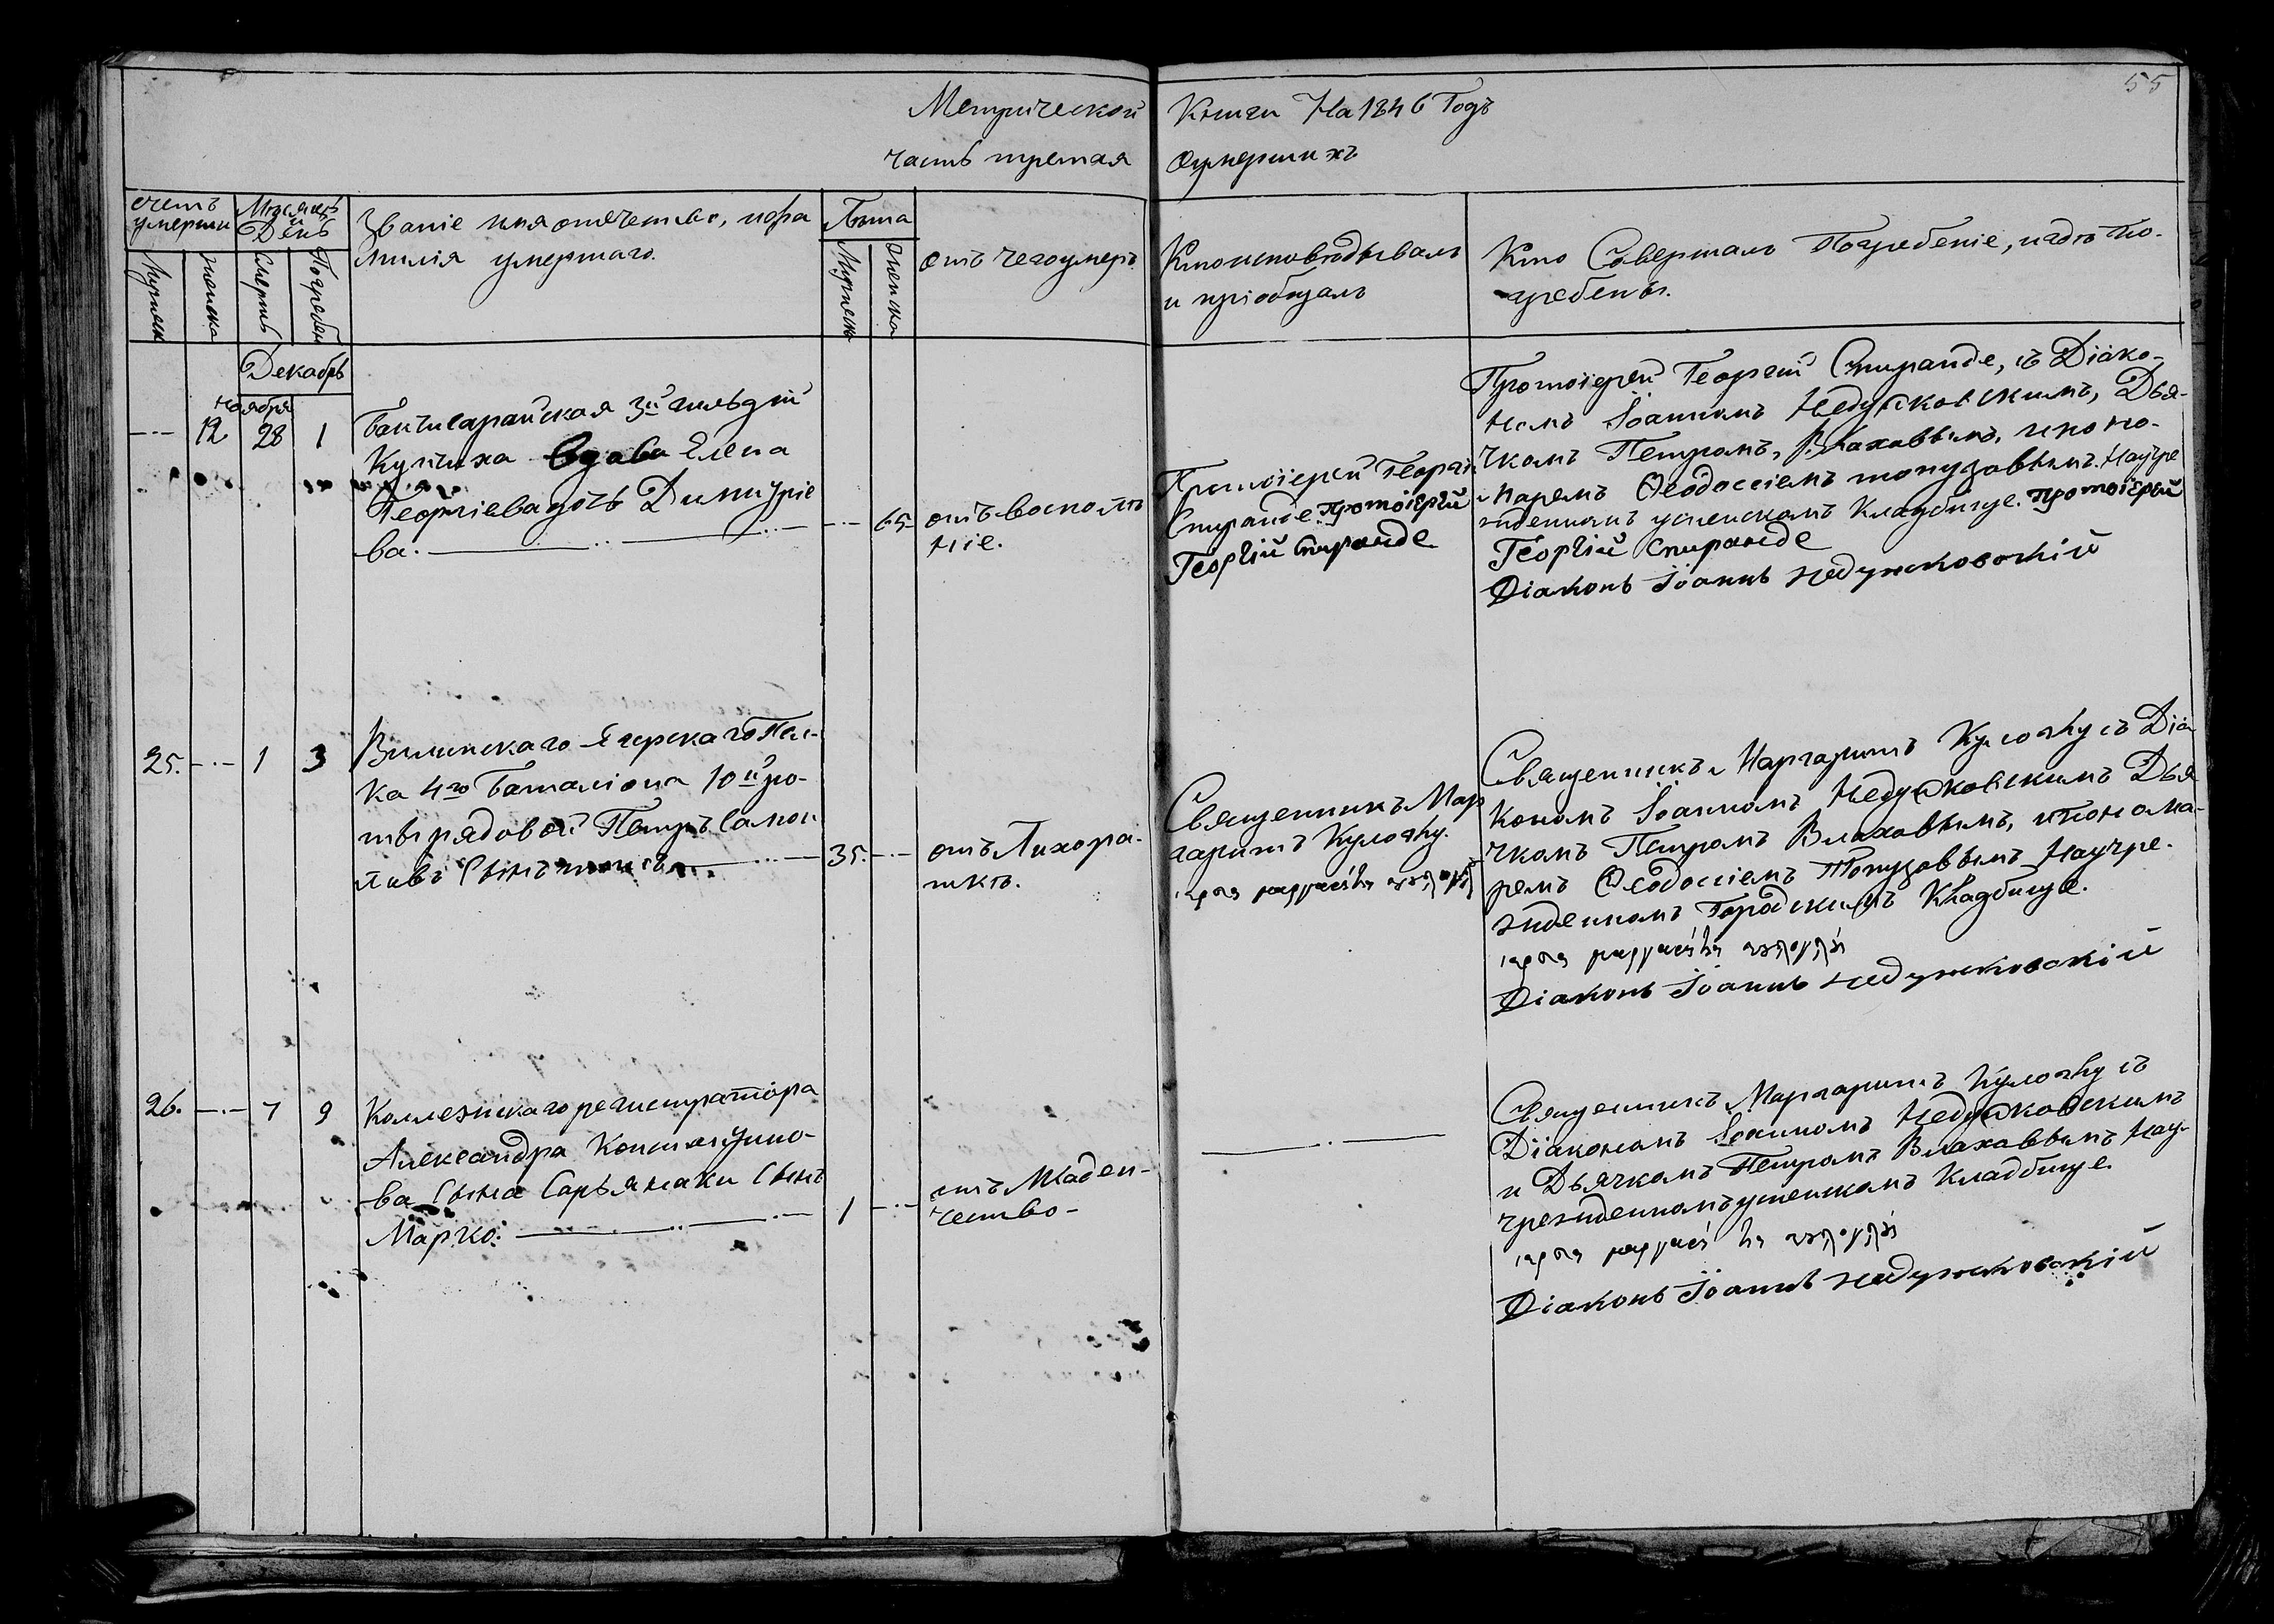 55
Метрической Книги На 1846 Годъ
часть третая Оумершихъ
счетъ умерши
Мужеск
женска
Мѣсяцъ и День
Смерть
Погребен
Званіе имя отечество, и фа
милія умершаго.
Лѣта
Мужеск
Женска
отъ чего умеръ
Кто исповѣдывалъ
и пріобщалъ
Кто Совершалъ Погребеніе, и гдѣ по-
гребенъ.
Декабрь
Ноября
12 28 1
Бахчисарайская 3й гильдіи
Купчиха Вдова Елена
Георгіева дочь Димитріе
ва.
65
отъ воспале
ніе.
Протоіерей Георгій
Спиранде. Протоіерей
Георгій Спиранде
Протоіерей Георгій Спиранде, съ Діако-
номъ Іоанномъ Недужковскимъ, Дья-
чкомъ Петромъ, Влаховымъ, и поно-
маремъ Ѳеодосіемъ топузовымъ. На учре
жденномъ успенскомъ Кладбище. Протоіерей
Георгій Спиранде
Діаконъ Іоаннъ Недужковскій
25. 1 3
Виленскаго Егерскаго Пол-
ка 4го Баталіона 10й ро-
ты рядовой Петръ
35.
отъ Лихора-
тки.
Священникъ Мар
гаритъ
Священникъ Маргаритъ съ Діа
кономъ Іоанномъ Недужковскимъ Дья
чкомъ Петромъ Влаховымъ, и Понома-
ремъ Ѳеодосіемъ Топузовымъ На учре-
жденномъ Городскимъ Кладбище.
Діаконъ Іоаннъ Недужковскій
26. 7 9
Коллежскаго регистратора
Александра Константино-
ва Сына Сарьянаки Сынъ
Марко.
1
отъ Младен-
чество-
Священникъ Маргаритъ съ
Діакономъ Іоанномъ Недужковскимъ
и Дьячкомъ Петромъ Влаховымъ На у-
чрежденномъ успенскомъ Кладбище.
Діаконъ Іоаннъ Недужковскій